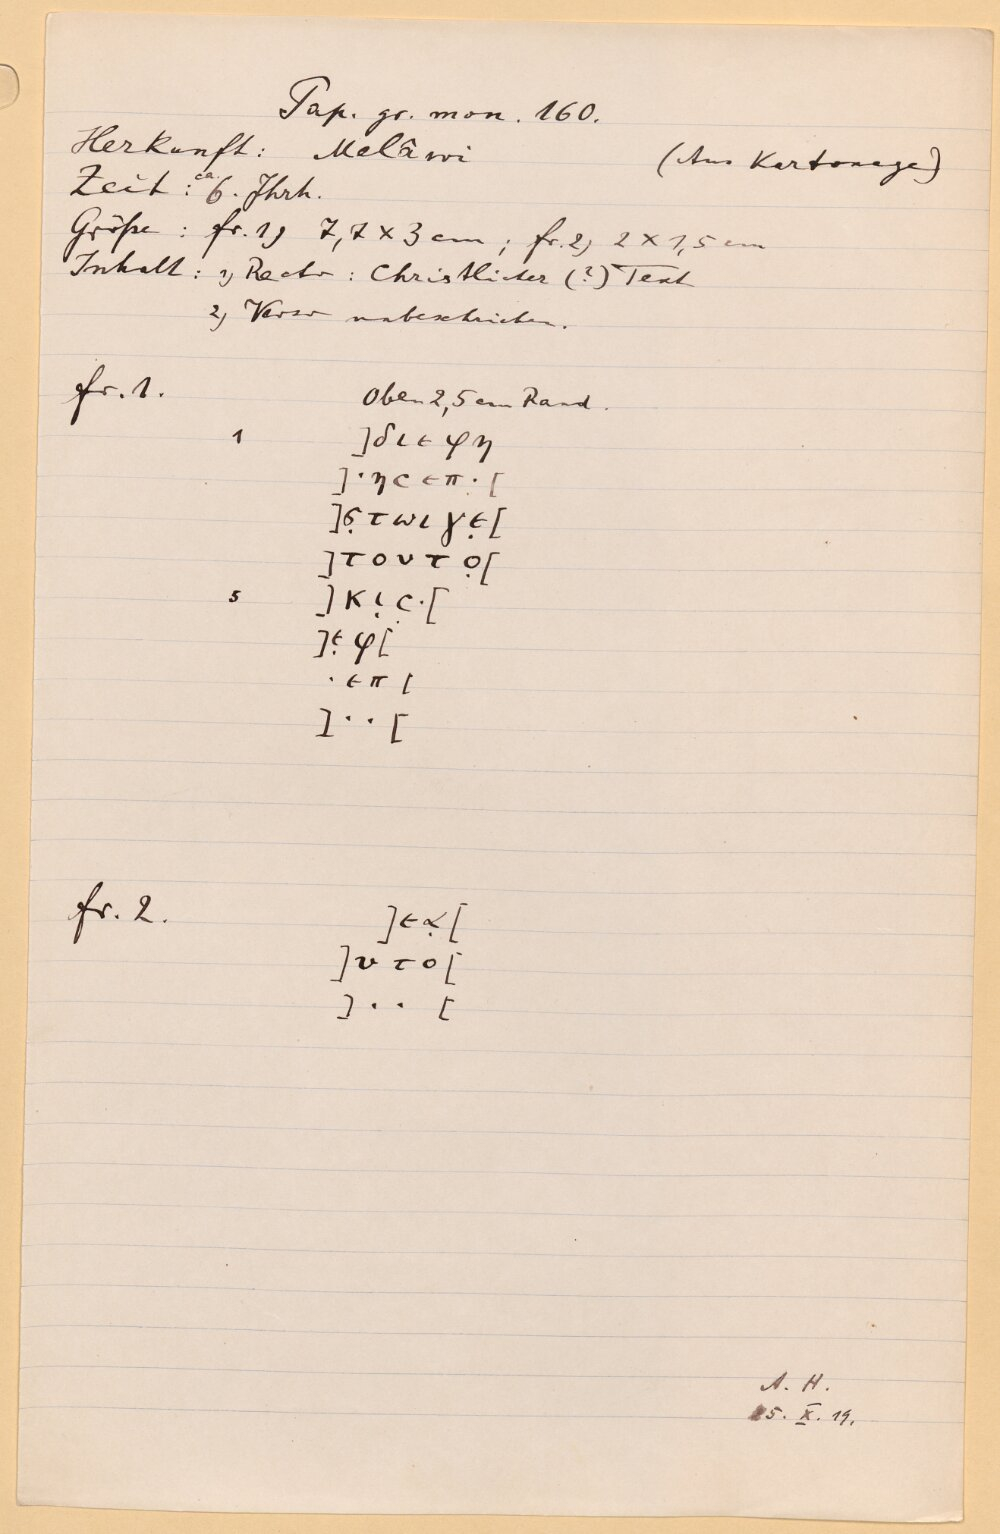 Pap. gr. mon. 160.
Herkunft: Melâwi (Aus Kartonage)
Zeit: ca. 6. Jhrh.
Größe: fr. 1) 7,7 × 3 cm; fr. 2) 2 × 1,5 cm
Inhalt: 1) Recto: Christlicher (?) Text
2) Verso unbeschrieben.
fr. 1. Oben 2,5 cm Rand.
1 ]διεφη
]·ηϲεπ·[
]ϭ̣τωιγε̣[
]τουτο̣[
5 ]κι̣ϲ̣·[
]ε̣φ[
·επ[
]··[
fr. 2. ]εα̣[
]υτο[
]·· [
A. H.
5. X. 19.